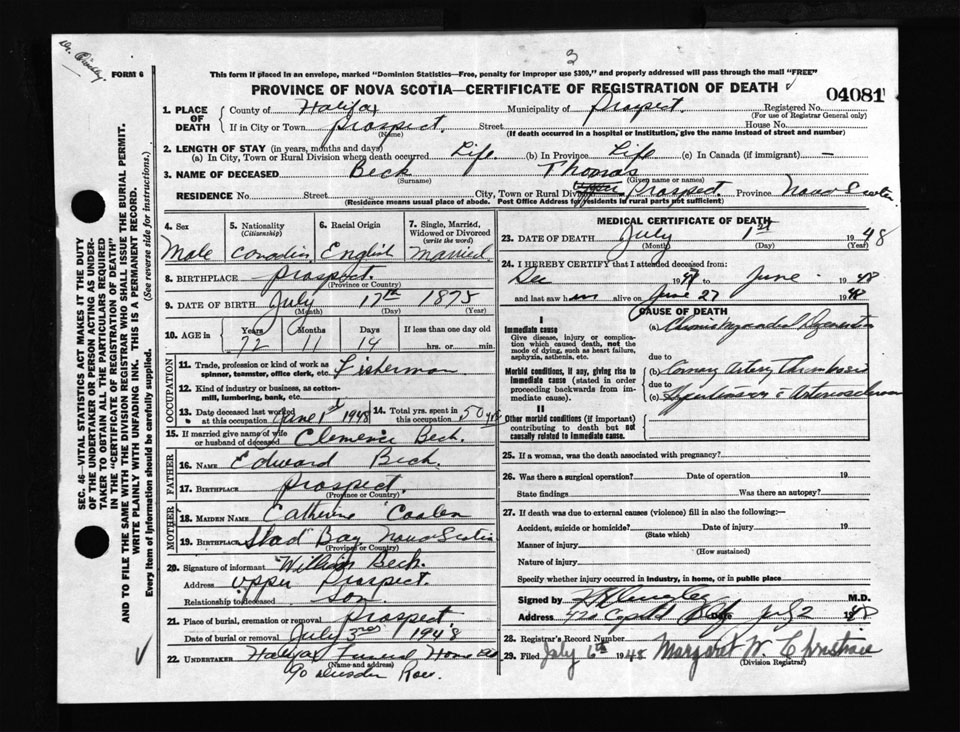 3
FORM 6
This form if placed in an envelope, marked "Dominion Statistics—Free, penalty for improper use $300," and properly addressed will pass through the mail "FREE"
PROVINCE OF NOVA SCOTIA—CERTIFICATE OF REGISTRATION OF DEATH
04081
1. PLACE OF DEATH
County of Halifax Municipality of Prospect Registered No.
(For use of Registrar General only)
If in City or Town Prospect. Street House No.
(Name) (If death occurred in a hospital or institution, give the name instead of street and number)
2. LENGTH OF STAY (in years, months and days)
(a) In City, Town or Rural Division where death occurred Life. (b) In Province Life (c) In Canada (if immigrant) —
3. NAME OF DECEASED Beck Thomas
(Surname) (Given name or names)
RESIDENCE No. Street City, Town or Rural Div. Upper Prospect. Province Nova Scotia
(Residence means usual place of abode. Post Office Address for residents in rural parts not sufficient)
4. Sex Male
5. Nationality (Citizenship) Canadian
6. Racial Origin English
7. Single, Married, Widowed or Divorced (write the word) Married
8. BIRTHPLACE Prospect.
(Province or Country)
9. DATE OF BIRTH July 17th 1875
(Month) (Day) (Year)
10. AGE in Years Months Days If less than one day old
72 11 14 hrs. or min.
OCCUPATION
11. Trade, profession or kind of work as spinner, teamster, office clerk, etc. Fisherman
12. Kind of industry or business, as cotton-mill, lumbering, bank, etc.
13. Date deceased last worked at this occupation June 1st 1948
14. Total yrs. spent in this occupation 50 yrs
15. If married give name of wife or husband of deceased Clemenic Beck.
FATHER
16. NAME Edward Beck.
17. BIRTHPLACE Prospect.
(Province or Country)
MOTHER
18. MAIDEN NAME Catherine Coolen
19. BIRTHPLACE Shad Bay Nova Scotia
(Province or Country)
20. Signature of informant William Beck.
Address Upper Prospect.
Relationship to deceased Son
21. Place of burial, cremation or removal Prospect.
Date of burial or removal July 3rd 1948
22. UNDERTAKER Halifax Funeral Home
(Name and address)
90 Row.
MEDICAL CERTIFICATE OF DEATH
23. DATE OF DEATH July 1st 1948
(Month) (Day) (Year)
24. I HEREBY CERTIFY that I attended deceased from
Dec 1947 to June 1948
and last saw him alive on June 27 1948
CAUSE OF DEATH
I
Immediate cause
Give disease, injury or complication which caused death, not the mode of dying, such as heart failure, asphyxia, asthenia, etc.
(a) Chronic Myocardial Degeneration
due to
Morbid conditions, if any, giving rise to immediate cause (stated in order proceeding backwards from immediate cause).
(b) Coronary Artery Thrombosis
due to
(c) Hypertension & Arteriosclerosis
II
Other morbid conditions (if important) contributing to death but not causally related to immediate cause.
25. If a woman, was the death associated with pregnancy?
26. Was there a surgical operation? Date of operation 19
State findings Was there an autopsy?
27. If death was due to external causes (violence) fill in also the following:—
Accident, suicide or homicide? Date of injury 19
(State which)
Manner of injury
(How sustained)
Nature of injury
Specify whether injury occurred in industry, in home, or in public place
Signed by M.D.
Address Date July 2 1948
28. Registrar's Record Number
29. Filed July 6th 1948 Margaret W. Christian
(Division Registrar)
SEC. 46—VITAL STATISTICS ACT MAKES IT THE DUTY
OF THE UNDERTAKER OR PERSON ACTING AS UNDER-
TAKER TO OBTAIN ALL THE PARTICULARS REQUIRED
IN THE "CERTIFICATE OF REGISTRATION OF DEATH"
AND TO FILE THE SAME WITH THE DIVISION REGISTRAR WHO SHALL ISSUE THE BURIAL PERMIT.
WRITE PLAINLY WITH UNFADING INK. THIS IS A PERMANENT RECORD.
Every item of Information should be carefully supplied. (See reverse side for instructions.)